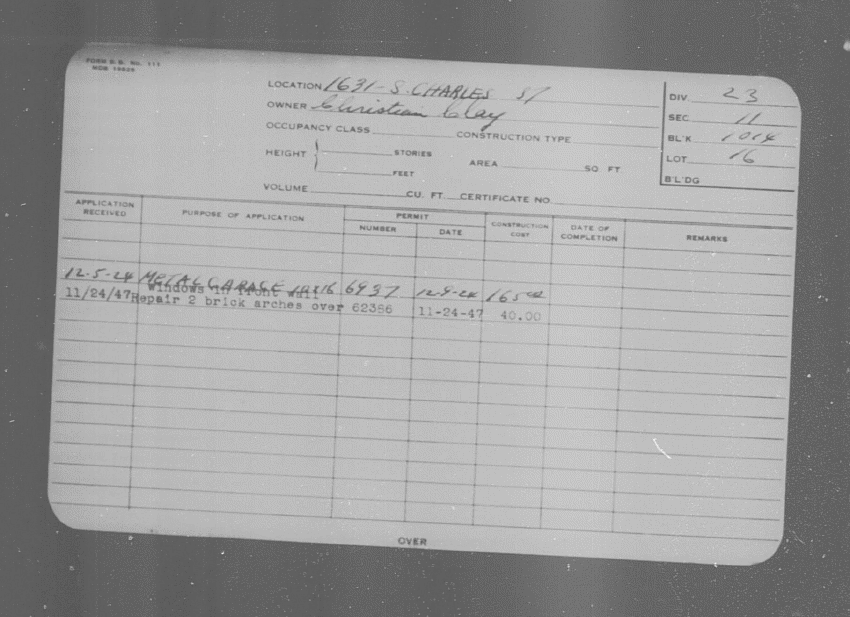 FORM B.B. No. 111
MDB 19625
LOCATION 1631 - S. CHARLES ST
OWNER Christian Clay
OCCUPANCY CLASS CONSTRUCTION TYPE
HEIGHT STORIES
FEET
AREA SQ. FT.
VOLUME CU. FT. CERTIFICATE NO.
DIV. 23
SEC. 11
BL'K 1014
LOT 16
B'L'DG
APPLICATION RECEIVED PURPOSE OF APPLICATION PERMIT NUMBER DATE CONSTRUCTION COST DATE OF COMPLETION REMARKS
12-5-24 METAL GARAGE 10x16 6937 12-9-24 165.00
windows in front wall
11/24/47 Repair 2 brick arches over 62366 11-24-47 40.00
OVER